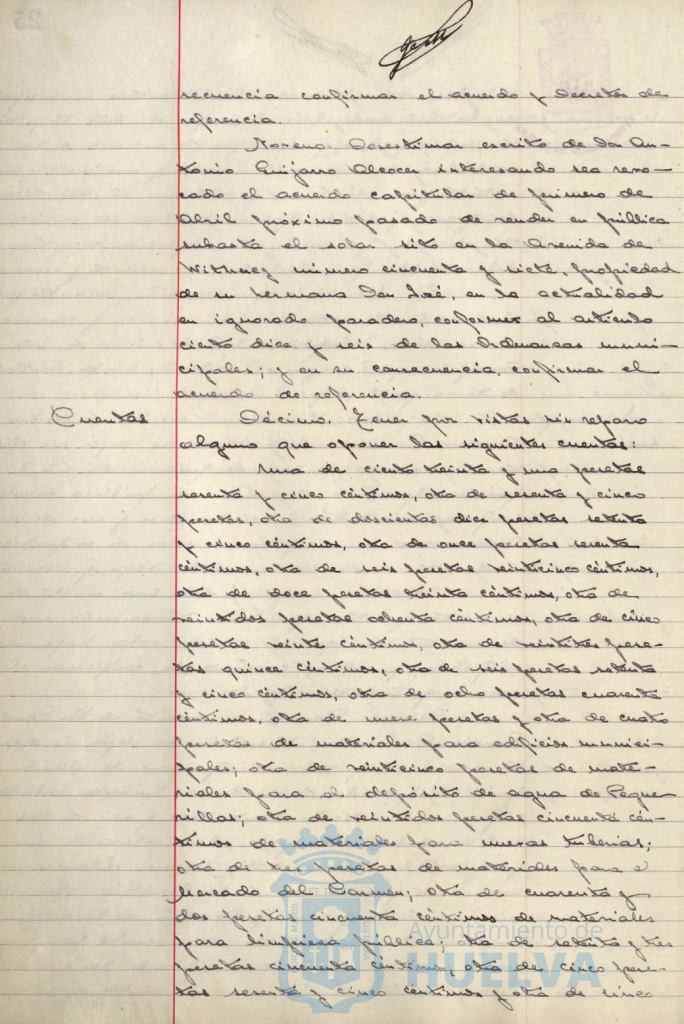 secuencia confirmar el acuerdo y Decretos de
referencia.
Noveno. Desestimar escrito de Don An-
tonio Guijarro Alcocer interesando sea revo-
cado el acuerdo capitular de primero de
Abril próximo pasado de vender en pública
subasta el solar sito en la Avenida de
número cincuenta y siete, propiedad
de su hermano Don José, en la actualidad
en ignorado paradero, conforme al artículo
ciento diez y seis de las Ordenanzas muni-
cipales; y en su consecuencia confirmar el
acuerdo de referencia.
Cuentas
Décimo. Tener por vistas sin reparo
alguno que oponer las siguientes cuentas:
Una de ciento treinta y una pesetas
sesenta y cinco céntimos, otra de sesenta y cinco
pesetas, otra de doscientas diez pesetas setenta
y cinco céntimos, otra de once pesetas sesenta
céntimos, otra de seis pesetas veinticinco céntimos,
otra de doce pesetas treinta céntimos, otra de
veintidos pesetas ochenta céntimos, otra de cinco
pesetas veinte céntimos, otra de veintitres pese-
tas quince céntimos, otra de seis pesetas setenta
y cinco céntimos, otra de ocho pesetas cuarenta
céntimos, otra de nueve pesetas y otra de cuatro
pesetas de materiales para edificios munici-
pales; otra de veinticinco pesetas de mate-
riales para el depósito de agua de Pegue-
rillas; otra de veintidos pesetas cincuenta cén-
timos de materiales para nuevas tuberias;
otra de tres pesetas de materiales para el
Mercado del Carmen; otra de cuarenta y
dos pesetas cincuenta céntimos de materiales
para limpieza pública; otra de setenta y tres
pesetas cincuenta céntimos, otra de cinco pese-
tas sesenta y cinco céntimos y otra de cinco
Ayuntamiento de
HUELVA